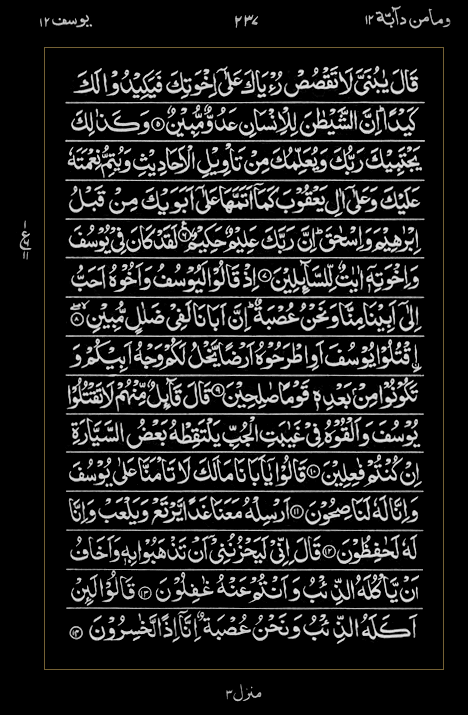 وما من دآبّة ١٢ ٢٣٧ یوسف ١٢
قَالَ يٰبُنَىَّ لَا تَقْصُصْ رُءْيَاكَ عَلٰٓى اِخْوَتِكَ فَيَكِيْدُوْا لَكَ
كَيْدًاؕ اِنَّ الشَّيْطٰنَ لِلْاِنْسَانِ عَدُوٌّ مُّبِيْنٌ ۵ وَكَذٰلِكَ
يَجْتَبِيْكَ رَبُّكَ وَيُعَلِّمُكَ مِنْ تَاْوِيْلِ الْاَحَادِيْثِ وَيُتِمُّ نِعْمَتَهٗ
عَلَيْكَ وَعَلٰٓى اٰلِ يَعْقُوْبَ كَمَاۤ اَتَمَّهَا عَلٰٓى اَبَوَيْكَ مِنْ قَبْلُ
اِبْرٰهِيْمَ وَاِسْحٰقَؕ اِنَّ رَبَّكَ عَلِيْمٌ حَكِيْمٌ ۶ لَقَدْ كَانَ فِىْ يُوْسُفَ
وَاِخْوَتِهٖۤ اٰيٰتٌ لِّلسَّآئِلِيْنَ ۷ اِذْ قَالُوْا لَيُوْسُفُ وَاَخُوْهُ اَحَبُّ
اِلٰٓى اَبِيْنَا مِنَّا وَنَحْنُ عُصْبَةٌؕ اِنَّ اَبَانَا لَفِىْ ضَلٰلٍ مُّبِيْنٍ ۸
اۨقْتُلُوْا يُوْسُفَ اَوِاطْرَحُوْهُ اَرْضًا يَّخْلُ لَكُمْ وَجْهُ اَبِيْكُمْ وَ
تَكُوْنُوْا مِنْۢ بَعْدِهٖ قَوْمًا صٰلِحِيْنَ ۹ قَالَ قَآئِلٌ مِّنْهُمْ لَا تَقْتُلُوْا
يُوْسُفَ وَاَلْقُوْهُ فِىْ غَيٰبَتِ الْجُبِّ يَلْتَقِطْهُ بَعْضُ السَّيَّارَةِ
اِنْ كُنْتُمْ فٰعِلِيْنَ ۱۰ قَالُوْا يٰۤاَبَانَا مَالَكَ لَا تَاْمَنَّا عَلٰى يُوْسُفَ
وَاِنَّا لَهٗ لَنٰصِحُوْنَ ۱۱ اَرْسِلْهُ مَعَنَا غَدًا يَّرْتَعْ وَيَلْعَبْ وَاِنَّا
لَهٗ لَحٰفِظُوْنَ ۱۲ قَالَ اِنِّىْ لَيَحْزُنُنِىْۤ اَنْ تَذْهَبُوْا بِهٖ وَاَخَافُ
اَنْ يَّاْكُلَهُ الذِّئْبُ وَاَنْتُمْ عَنْهُ غٰفِلُوْنَ ۱۳ قَالُوْا لَئِنْ
اَكَلَهُ الذِّئْبُ وَنَحْنُ عُصْبَةٌ اِنَّاۤ اِذًا لَّخٰسِرُوْنَ ۱۴
منزل ٣